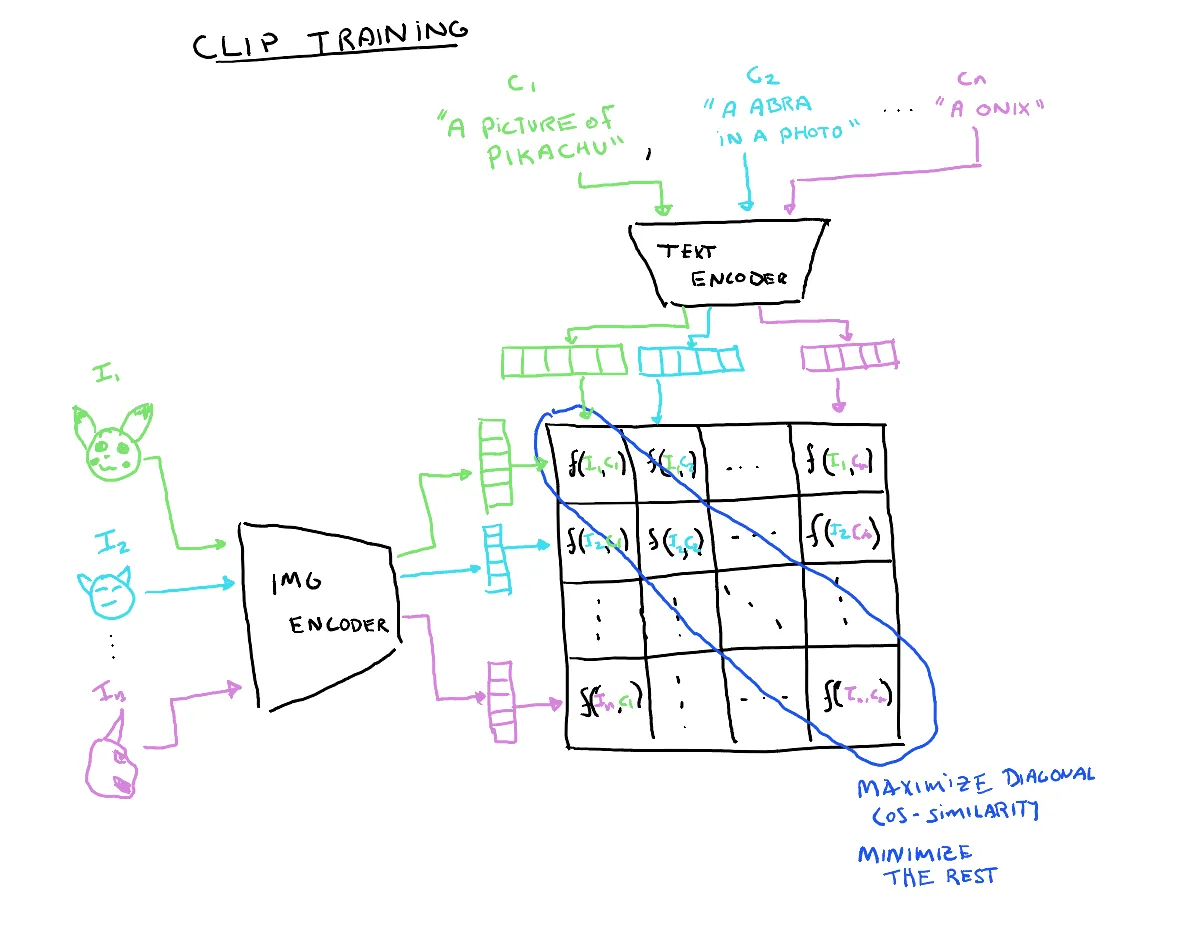 CLIP TRAINING
C1
"A PICTURE OF
PIKACHU"
,
C2
"A ABRA
IN A PHOTO"
...
Cn
"A ONIX"
TEXT
ENCODER
I1
I2
In
IMG
ENCODER
f(I1,C1) f(I1,C2) ... f(I1,Cn)
f(I2,C1) f(I2,C2) ... f(I2,Cn)
f(In,C1) ... f(In,Cn)
MAXIMIZE DIAGONAL
COS-SIMILARITY
MINIMIZE
THE REST